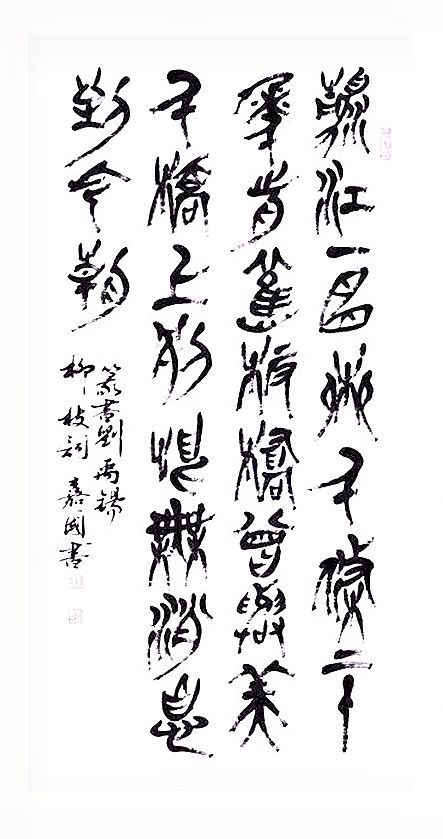 江一曲柳千條二十
年前舊板橋曾與美
人橋上別恨無消息
到今朝
篆書劉禹錫
柳枝詞 嘉國書